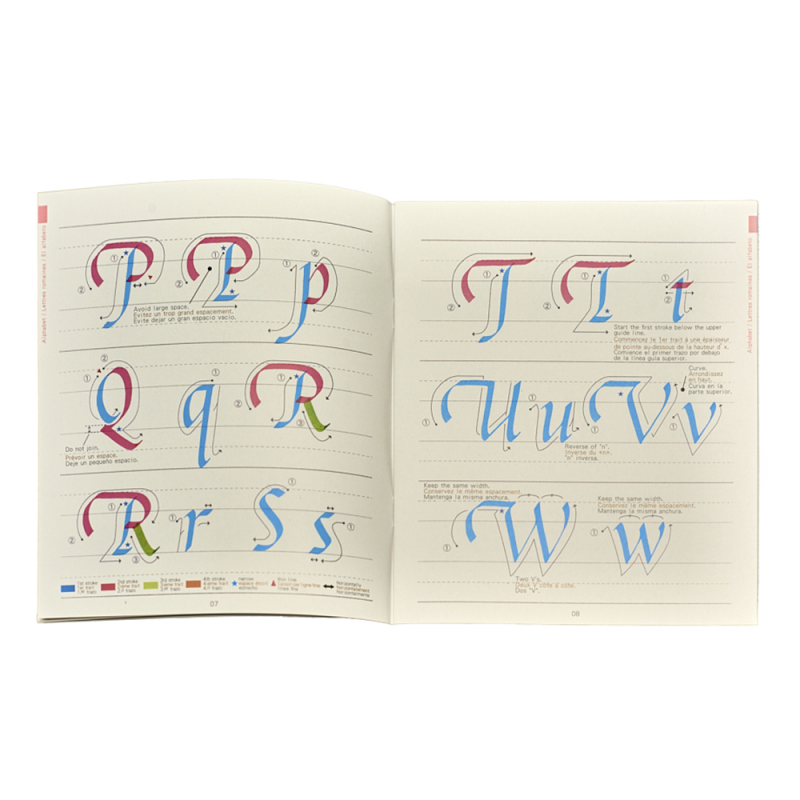 Alphabet / Lettres romaines / El alfabeto
P P p
Avoid large space.
Evitez un trop grand espacement.
Evite dejar un gran espacio vacio.
Q q R
Do not join.
Prévoir un espace.
Deje un pequeño espacio.
R r S s
1st stroke
1er trait
1er trazo
2nd stroke
2ème trait
2º trazo
3rd stroke
3ème trait
3er trazo
4th stroke
4ème trait
4º trazo
narrow
thin line
Horizontally
07
Alphabet / Lettres romaines / El alfabeto
T T t
Start the first stroke below the upper
guide line.
Commencez le 1er trait à une épaisseur
de pointe au-dessous de la hauteur d'x.
Comience el primer trazo por debajo
de la línea guía superior.
U u V v
Curve.
Arrondissez
en haut.
Curva en la
parte superior.
Reverse of "n".
Inverse du «n».
"n" inversa.
Keep the same width.
Conservez le même espacement.
Mantenga la misma anchura.
Keep the same width.
Conservez le même espacement.
Mantenga la misma anchura.
W w
Two V's.
Deux V côte à côte.
Dos "V".
08